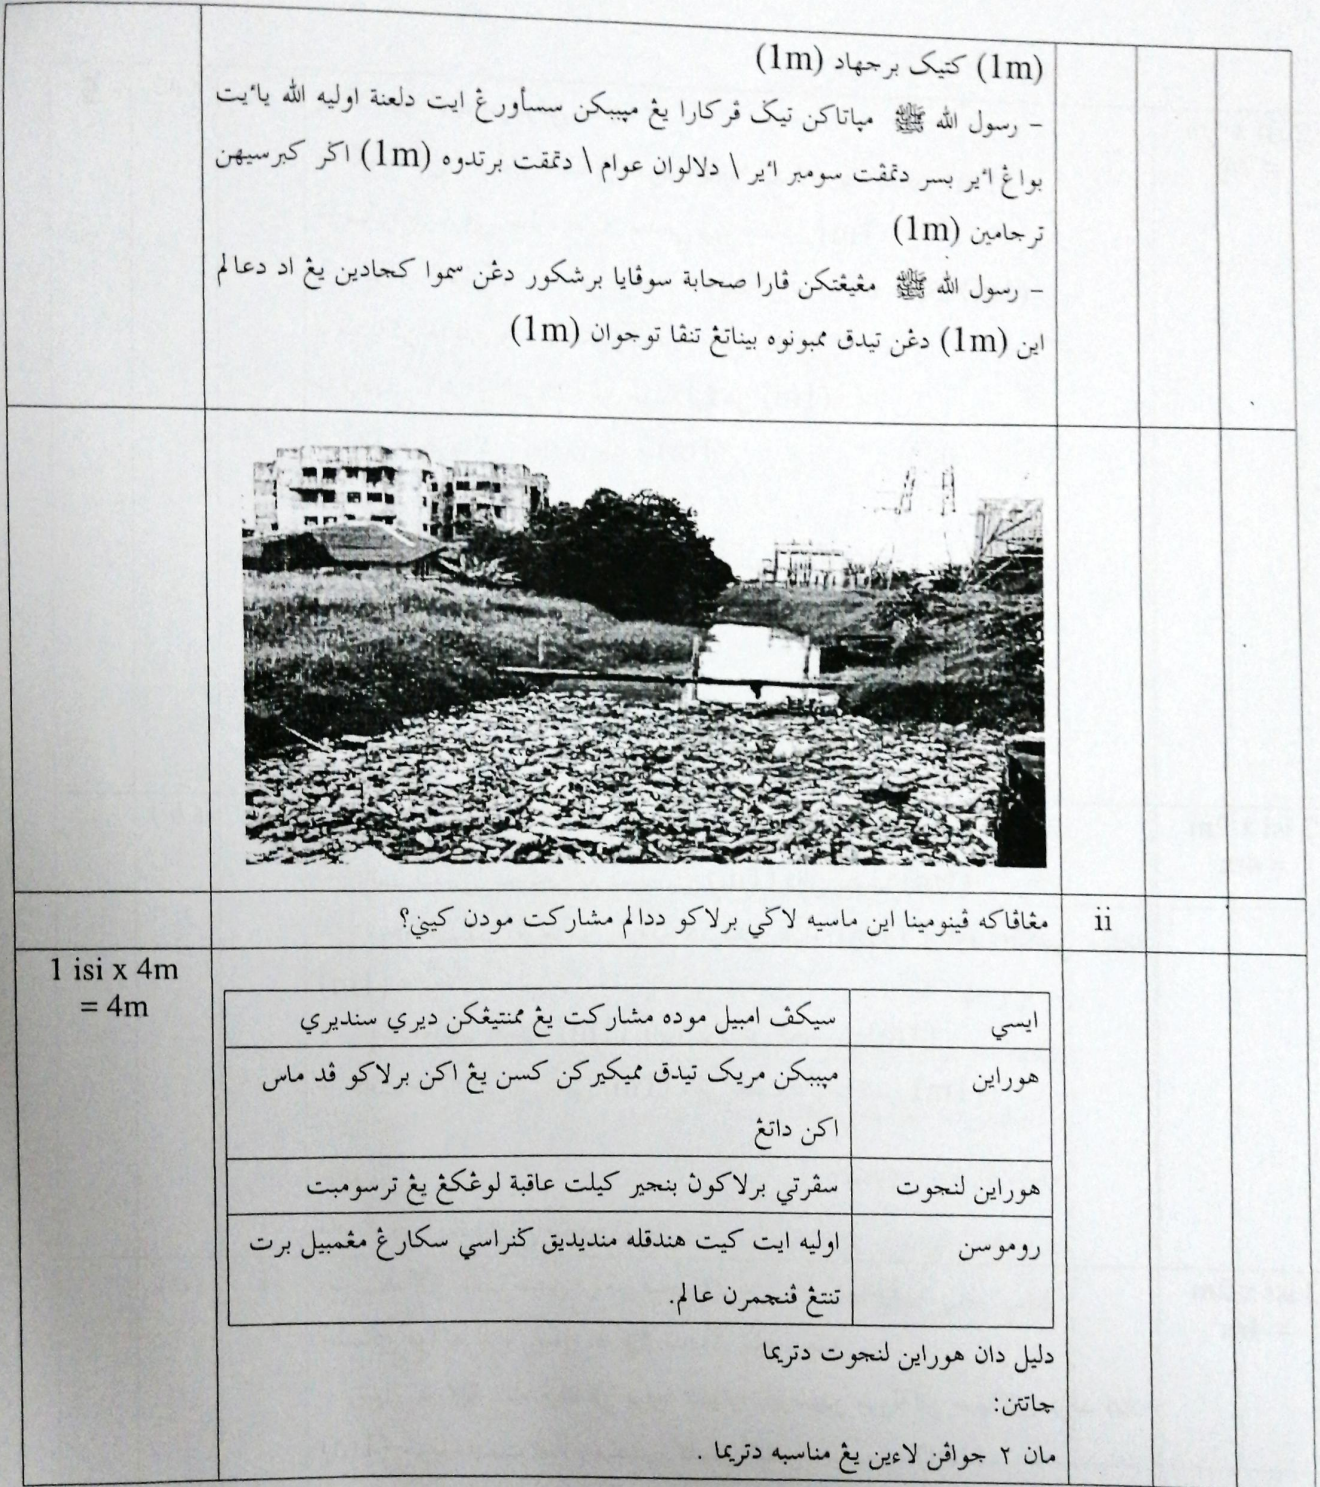 (1m) کتيک برجهاد (1m)
– رسول الله ﷺ مڽاتاکن تيݢ ڤرکارا يڠ مڽببکن سسأورڠ ايت دلعنة اوليه الله يائيت
بواڠ اءير بسر دتمڤت سومبر اءير \ دلالوان عوام \ دتمڤت برتدوه (1m) اݢر کبرسيهن
ترجامين (1m)
– رسول الله ﷺ مڠيڠتکن ڤارا صحابة سوڤايا برشکور دڠن سموا کجادين يڠ اد دعالم
اين (1m) دڠن تيدق ممبونوه بيناتڠ تنڤا توجوان (1m)
ii مڠاڤاکه ڤينومينا اين ماسيه لاݢي برلاکو ددالم مشارکت مودن کيني؟
1 isi x 4m
= 4m
ايسي سيکڤ امبيل موده مشارکت يڠ ممنتيڠکن ديري سنديري
هوراين مڽببکن مريک تيدق مميکيرکن کسن يڠ اکن برلاکو ڤد ماس
اکن داتڠ
هوراين لنجوت سڤرتي برلاکوڽ بنجير کيلت عاقبة لوڠکڠ يڠ ترسومبت
روموسن اوليه ايت کيت هندقله منديديق ݢنراسي سکارڠ مڠمبيل برت
تنتڠ ڤنچمرن عالم.
دليل دان هوراين لنجوت دتريما
چاتتن:
مان ٢ جواڤن لاءين يڠ مناسبه دتريما .